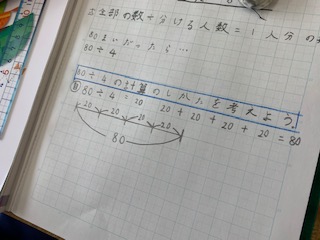 全部の数÷分ける人数=1人分の
80まいだったら…
80÷4
80÷4の計算のしかたを考えよう
80÷4=20 20+20+20+20=80
20 20 20 20
80